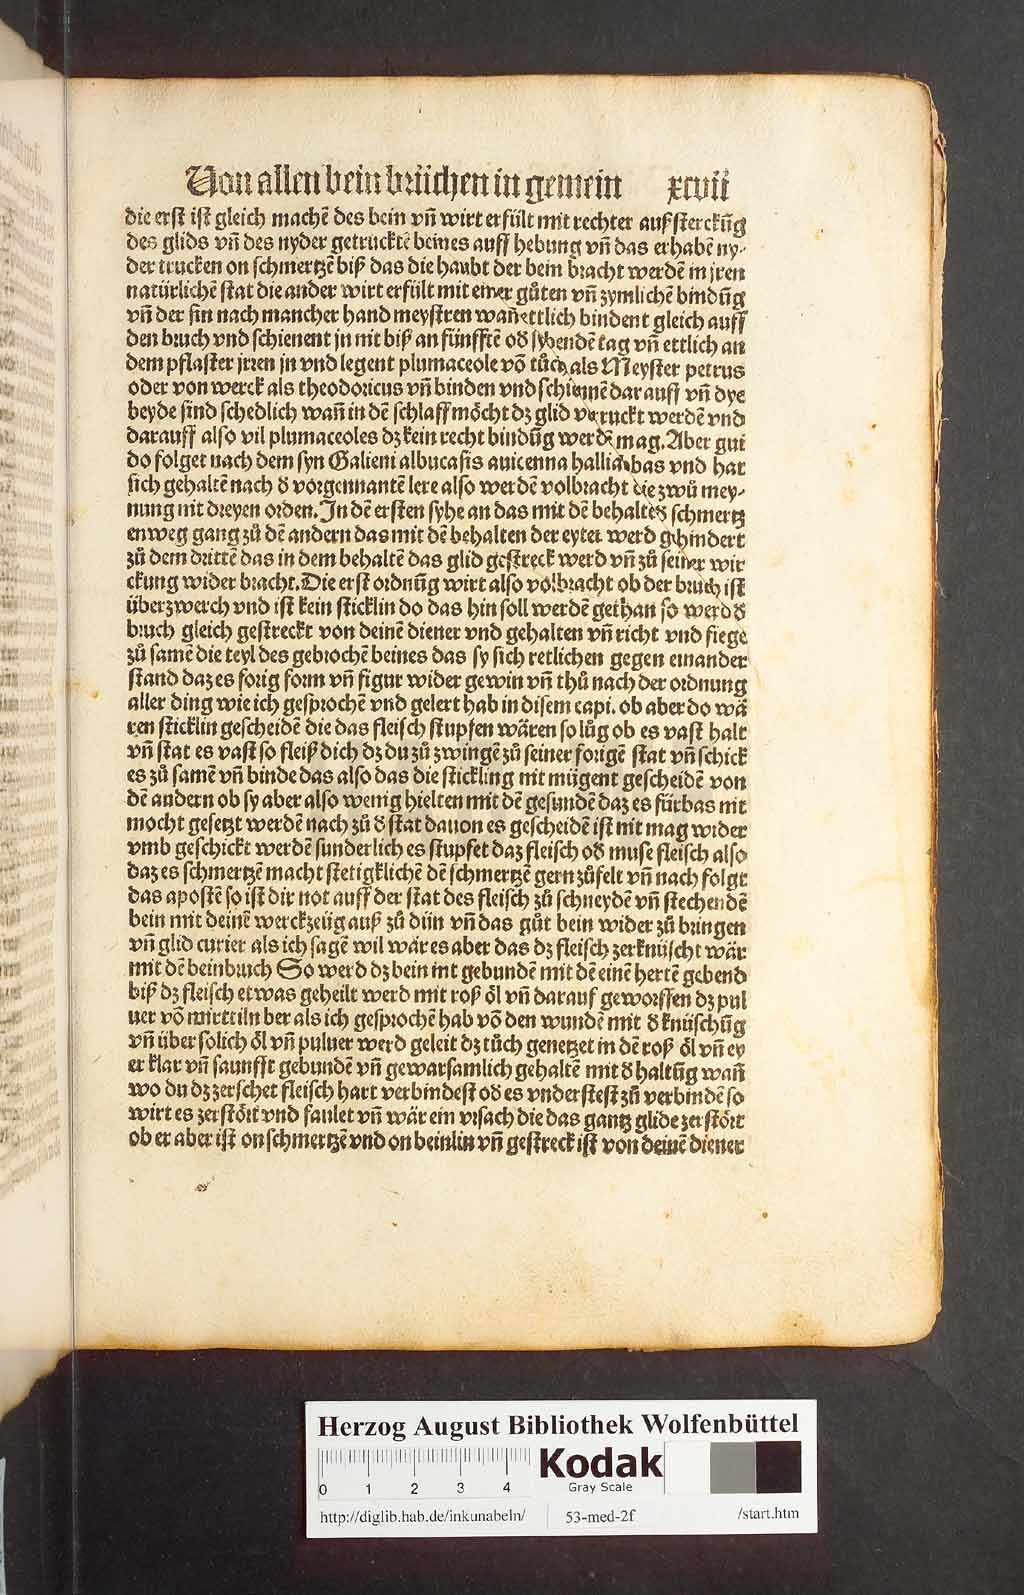 Von allen bein brüchen in gemein xcvii
die erst ist gleich machē des bein vñ wirt erfült mit rechter auß sterckūg
des glids vñ des nyder getrucktē beines auff hebung vñ das erhabē ny-
der trucken on schmertzē biß das die haubt der bein bracht werdē in jren
natürlichē stat die ander wirt erfült mit einer gůten vñ zymlichē bindūg
vñ der sin nach mancher hand meystren wañ ettlich bindent gleich auff
den bruch vnd schienent jn nit biß an fünfftē oď sybendē tag vñ ettlich an
dem pflaster jrren jn vnd legent plumaceole vō tůch als Meyster petrus
oder von werck als theodoricus vñ binden vnd schienē darauff vñ dye
beyde sind schedlich wañ in dē schlaff möcht dz glid verruckt werdē vnd
darauff also vil plumaceoles dz kein recht bindūg werdē mag. Aber gui
do folget nach dem syn Galieni albucasis auicenna halliabas vnd hat
sich gehaltē nach ď vorgennantē lere also werdē volbracht die zwů mey-
nung mit dreyen orden. In dē ersten syhe an das mit dē behaltē ď schmertz
enweg gang zů dē andern das mit dē behalten der eyter werd gehindert
zů dem drittē das in dem behaltē das glid gestreck werd vñ zů seiner wir
ckung wider bracht. Die erst ordnūg wirt also volbracht ob der bruch ist
überzwerch vnd ist kein sticklin do das hin soll werdē gethan so werd ď
bruch gleich gestreckt von deinē diener vnd gehalten vñ richt vnd fiege
zů samē die teyl des gebrochē beines das sy sich retlichen gegen einander
stand daz es forig form vñ figur wider gewin vñ thů nach der ordnung
aller ding wie ich gesprochē vnd gelert hab in disem capi. ob aber do wä
ren sticklin gescheidē die das fleisch stupfen wären so lůg ob es vast halt
vñ stat es vast so fleiß dich dz du zů zwingē zů seiner forigē stat vñ schick
es zů samē vñ binde das also das die stickling nit mügent gescheidē von
dē andern ob sy aber also wenig hielten mit dē gesundē daz es fürbas nit
mocht gesetzt werdē nach zů ď stat dauon es gescheidē ist nit mag wider
vmb geschickt werdē sunderlich es stupfet daz fleisch oď muse fleisch also
daz es schmertzē macht stetigklichē dē schmertzē gern zůfelt vñ nach folgt
das apostē so ist dir not auff der stat des fleisch zů schneydē vñ stechendē
bein mit deinē werckzeüg auß zů dün vñ das gůt bein wider zů bringen
vñ glid curier als ich sagē wil wär es aber das dz fleisch zerknüscht wär
mit dē beinbruch So werd dz bein nit gebundē mit dē einē hertē gebend
biß dz fleisch etwas geheilt werd mit roß öl vñ darauf geworffen dz pul
uer vō mirttiln ber als ich gesprochē hab vō den wundē mit ď knüschūg
vñ über solich öl vñ puluer werd geleit dz tůch genetzet in dē roß öl vñ ey
er klar vñ saunfft gebundē vñ gewarsamlich gehaltē mit ď haltūg wañ
wo du dz zerschet fleisch hart verbindest oď es vnderstest zů verbindē so
wirt es zerstört vnd faulet vñ wär ein vrsach die das gantz glide zerstört
ob er aber ist on schmertzē vnd on beinlin vñ gestreck ist von deinē diener
Herzog August Bibliothek Wolfenbüttel
0 1 2 3 4
Kodak
Gray Scale
http://diglib.hab.de/inkunabeln/ 53-med-2f /start.htm